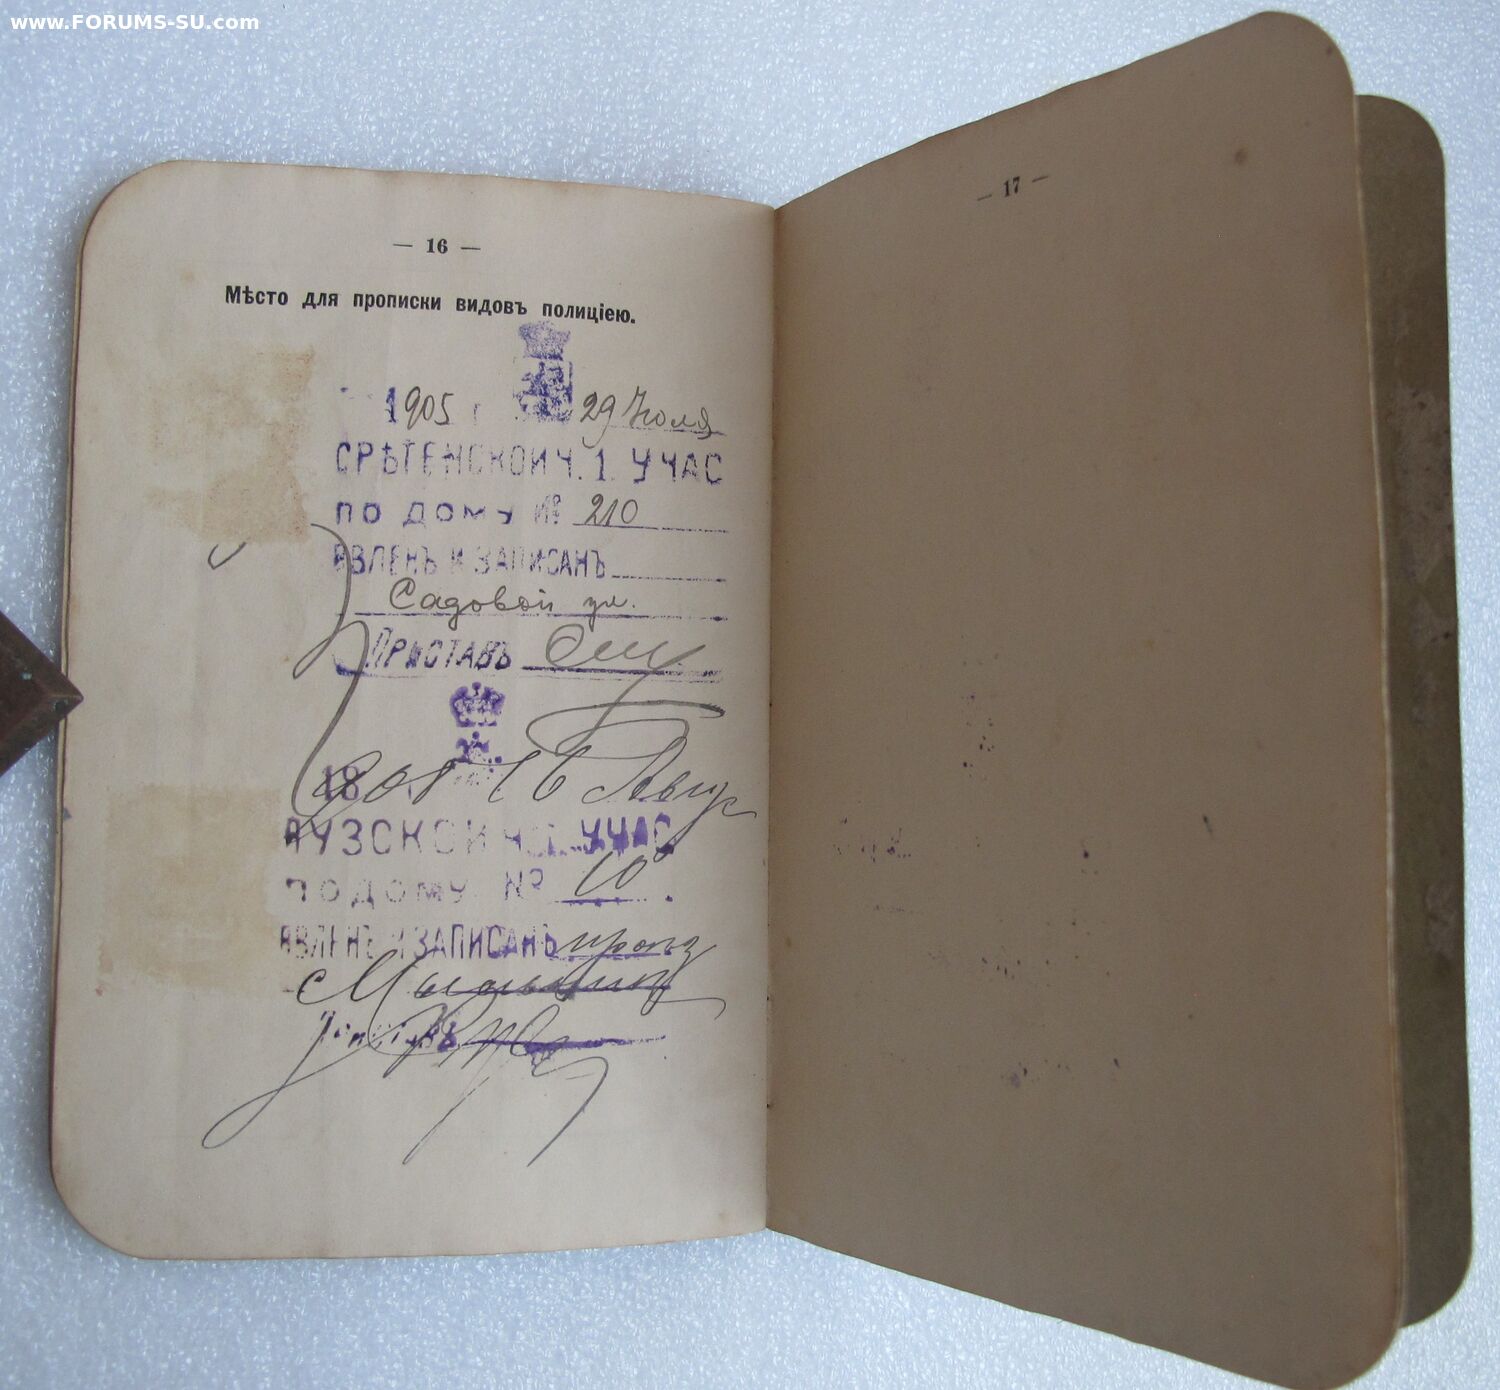 www.FORUMS-SU.com
— 16 —
Мѣсто для прописки видовъ полиціею.
1905 г 29 Іюля
СРѢТЕНСКОЙ Ч. 1. УЧАС
ПО ДОМУ № 210
ЯВЛЕНЪ И ЗАПИСАНЪ
Садовой ул.
ПРИСТАВЪ
18 908 16 Авгус
ЯУЗСКОЙ УЧАС
ПО ДОМУ № 10
ЯВЛЕНЪ И ЗАПИСАНЪ
с
— 17 —